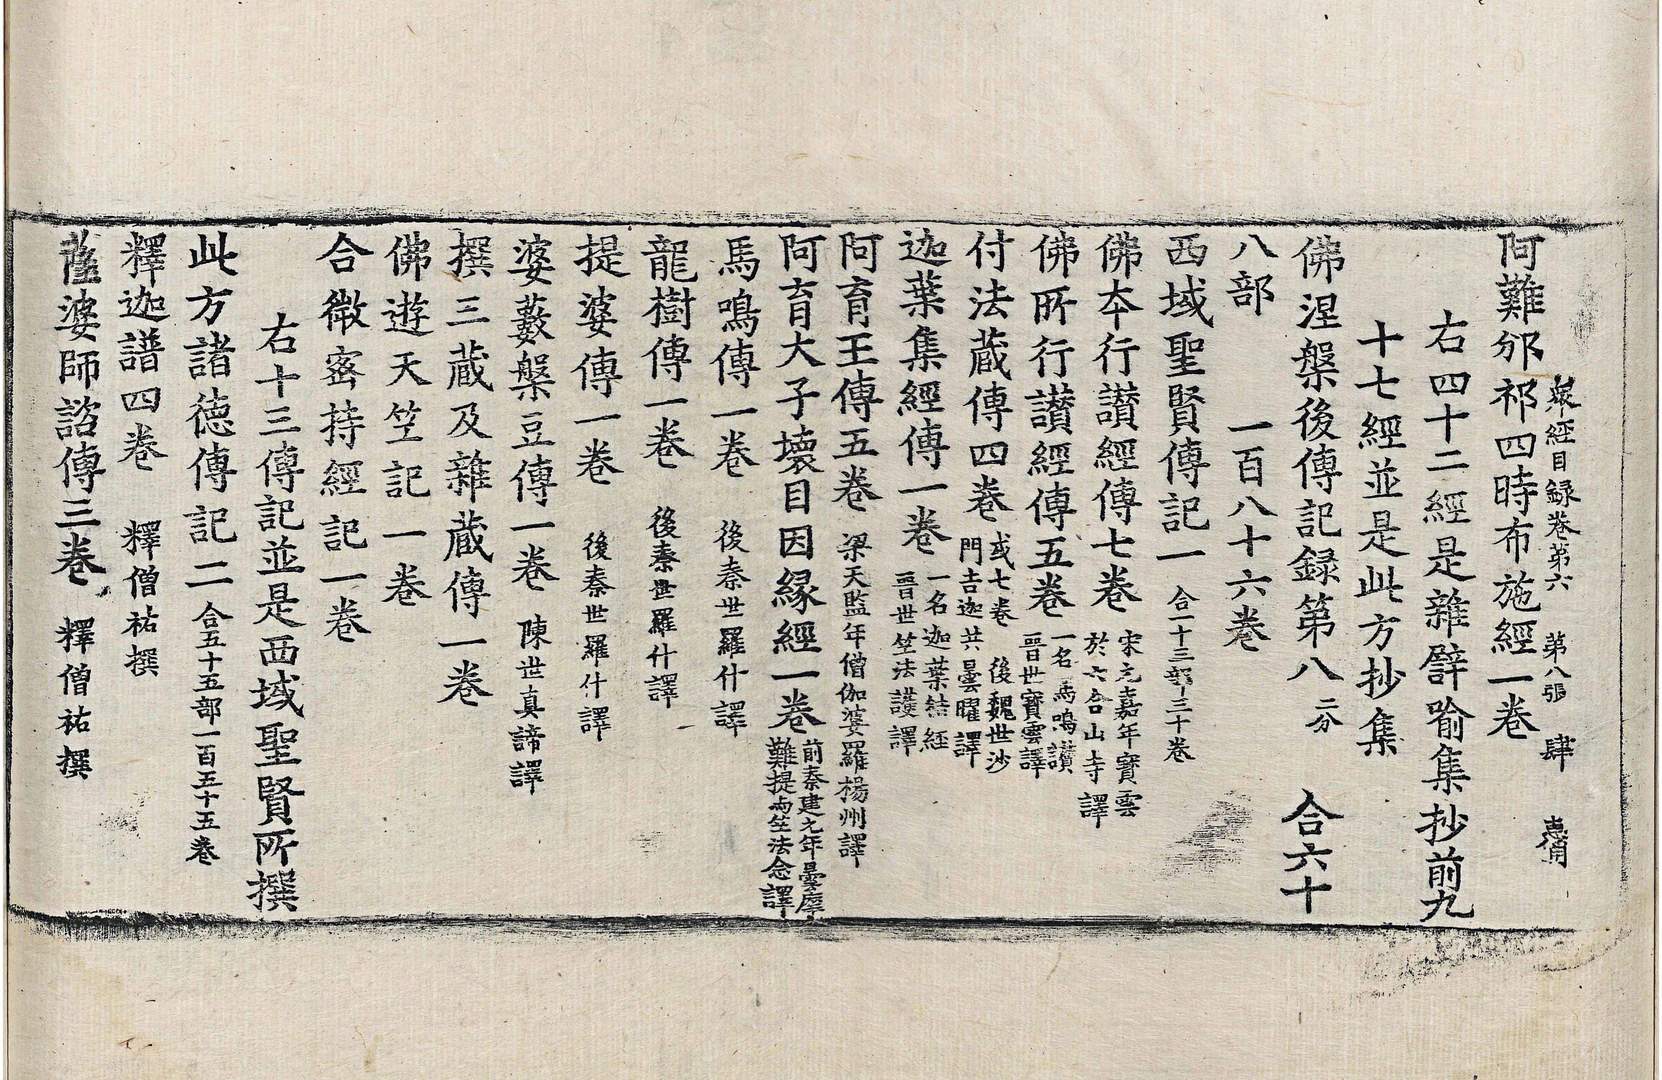 衆經目録卷第六 第八張 肆
阿難邠祁四時布施經一卷
右四十二經是雜譬喻集抄前九
十七經並是此方抄集
佛涅槃後傳記録第八 二分 合六十
八部 一百八十六卷
西域聖賢傳記一 合一十三部三十卷
佛本行讃經傳七卷 宋元嘉年寳雲於六合山寺譯
佛所行讃經傳五卷 一名馬鳴讃 晋世寳雲譯
付法蔵傳四卷 或七卷 後魏世沙門吉迦共曇曜譯
迦葉集經傳一卷 一名迦葉結經 晋世竺法護譯
阿育王傳五卷 梁天監年僧伽婆羅楊州譯
阿育大子壞目因縁經一卷 前秦建元年曇摩難提共竺法念譯
馬鳴傳一卷 後秦世羅什譯
龍樹傳一卷 後秦世羅什譯
提婆傳一卷 後秦世羅什譯
婆藪槃豆傳一卷 陳世真諦譯
撰三蔵及雜蔵傳一卷
佛遊天竺記一卷
合微密持經記一卷
右十三傳記並是西域聖賢所撰
此方諸徳傳記二 合五十五部一百五十五卷
釋迦譜四卷 釋僧祐撰
薩婆師諮傳三卷 釋僧祐撰